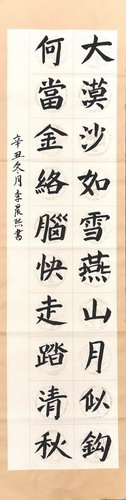 大漠沙如雪燕山月似鈎
何當金絡腦快走踏清秋
辛丑冬月李晨熙書